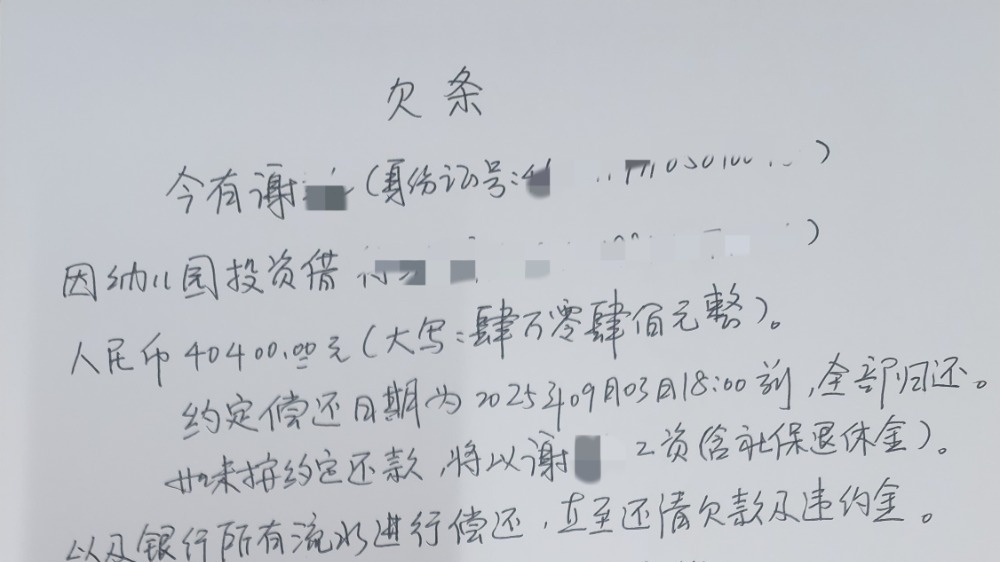 欠条
今有谢（身份证号:
因幼儿园投资借
人民币40400.00元（大写:肆万零肆佰元整）。
约定偿还日期为2025年09月03日18:00前，全部归还。
如未按约定还款，将以谢 工资（含社保退休金）。
以及银行所有流水进行偿还，直至还清欠款及违约金。